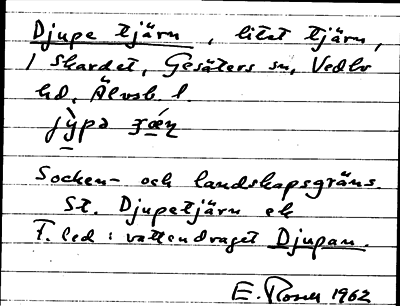 Djupe tjärn, litet tjärn,
i Skardet, Gesäters sn, Vedbo
hd, Älvsb. l.
Socken- och landskapsgräns.
St. Djupetjärn ek
F. led : vattendraget Djupan.
E. Rosell 1962